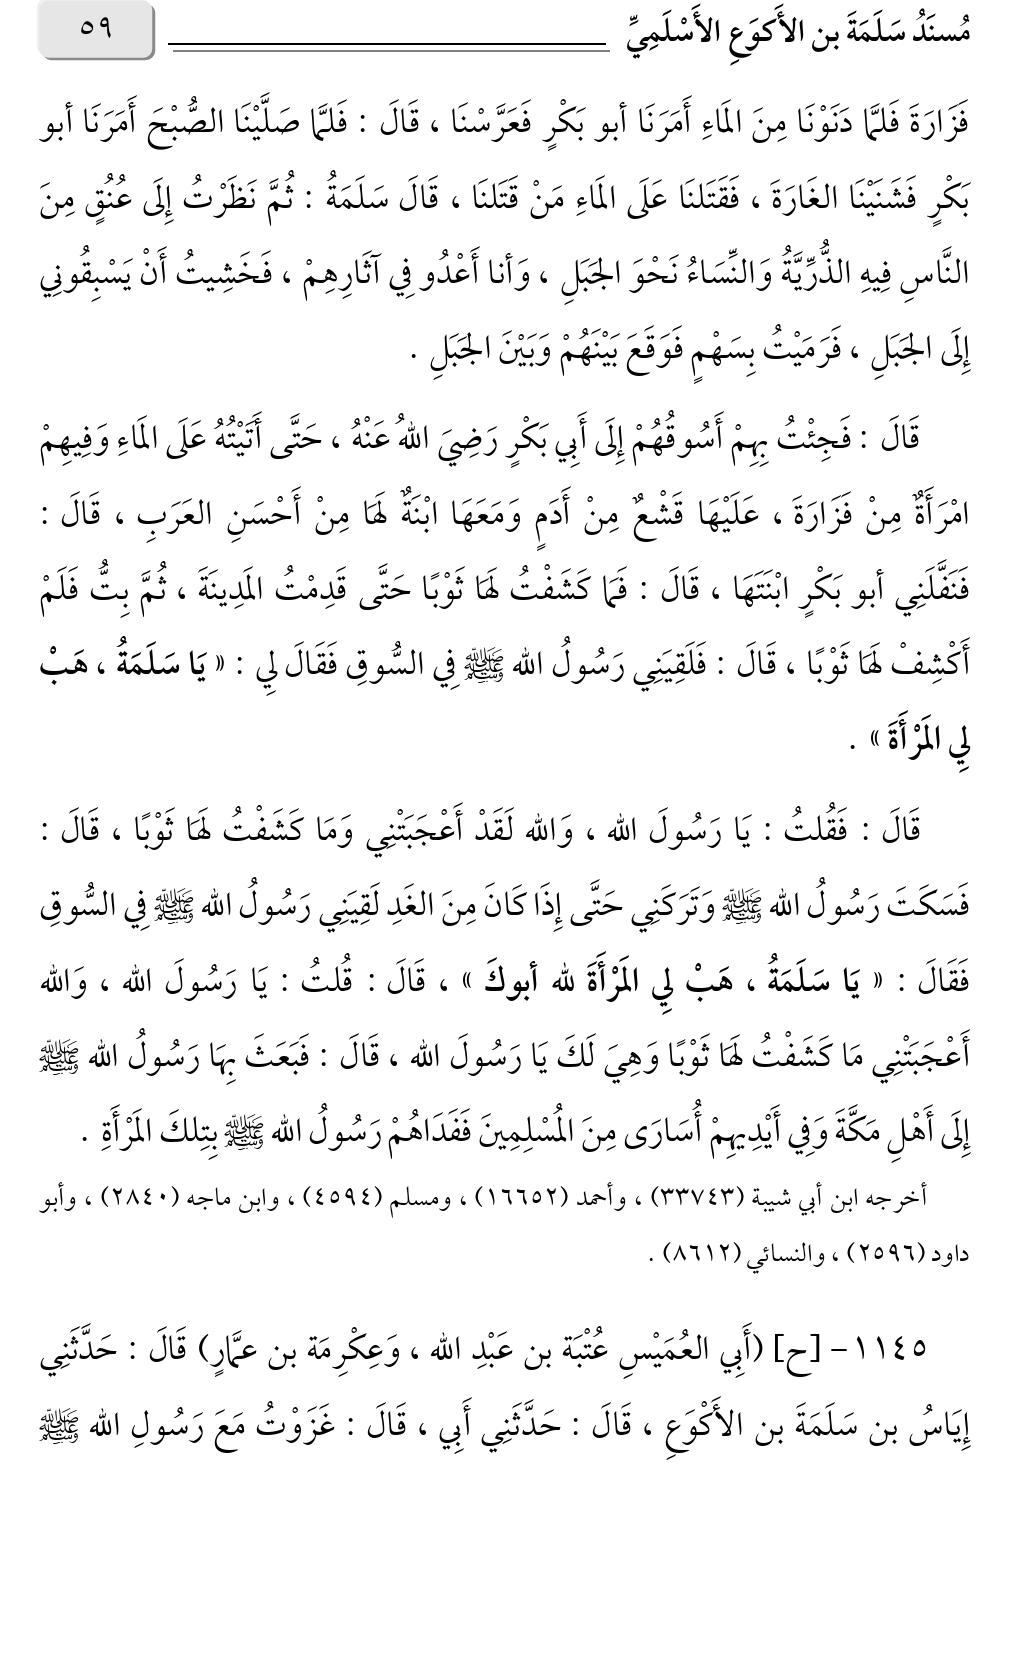 مُسنَدُ سَلَمَةَ بن الأَكوَعِ الأَسْلَمِيِّ ٥٩
فَزَارَةَ فَلمَّا دَنَوْنَا مِنَ المَاءِ أَمَرَنَا أبو بَكْرٍ فَعَرَّسْنَا ، قَالَ : فَلمَّا صَلَّيْنَا الصُّبْحَ أَمَرَنَا أبو
بَكْرٍ فَشَنَيْنَا الغَارَةَ ، فَقَتَلنَا عَلَى المَاءِ مَنْ قَتَلنَا ، قَالَ سَلَمَةُ : ثُمَّ نَظَرْتُ إِلَى عُنُقٍ مِنَ
النَّاسِ فِيهِ الذُّرِّيَّةُ وَالنِّسَاءُ نَحْوَ الجَبَلِ ، وَأنا أَعْدُو فِي آثَارِهِمْ ، فَخَشِيتُ أَنْ يَسْبِقُونِي
إِلَى الجَبَلِ ، فَرَمَيْتُ بِسَهْمٍ فَوَقَعَ بَيْنَهُمْ وَبَيْنَ الجَبَلِ .
قَالَ : فَجِئْتُ بِهِمْ أَسُوقُهُمْ إِلَى أَبِي بَكْرٍ رَضِيَ اللهُ عَنْهُ ، حَتَّى أَتَيْتُهُ عَلَى المَاءِ وَفِيهِمْ
امْرَأَةٌ مِنْ فَزَارَةَ ، عَلَيْهَا قَشْعٌ مِنْ أَدَمٍ وَمَعَهَا ابْنَةٌ لَهَا مِنْ أَحْسَنِ العَرَبِ ، قَالَ :
فَنَفَّلَنِي أبو بَكْرٍ ابْنَتَهَا ، قَالَ : فَمَا كَشَفْتُ لَهَا ثَوْبًا حَتَّى قَدِمْتُ المَدِينَةَ ، ثُمَّ بِتُّ فَلَمْ
أَكْشِفْ لَهَا ثَوْبًا ، قَالَ : فَلَقِيَنِي رَسُولُ الله ﷺ فِي السُّوقِ فَقَالَ لِي : « يَا سَلَمَةُ ، هَبْ
لِي المَرْأَةَ » .
قَالَ : فَقُلتُ : يَا رَسُولَ الله ، وَالله لَقَدْ أَعْجَبَتْنِي وَمَا كَشَفْتُ لَهَا ثَوْبًا ، قَالَ :
فَسَكَتَ رَسُولُ الله ﷺ وَتَرَكَنِي حَتَّى إِذَا كَانَ مِنَ الغَدِ لَقِيَنِي رَسُولُ الله ﷺ فِي السُّوقِ
فَقَالَ : « يَا سَلَمَةُ ، هَبْ لِي المَرْأَةَ لله أبوكَ » ، قَالَ : قُلتُ : يَا رَسُولَ الله ، وَالله
أَعْجَبَتْنِي مَا كَشَفْتُ لَهَا ثَوْبًا وَهِيَ لَكَ يَا رَسُولَ الله ، قَالَ : فَبَعَثَ بِهَا رَسُولُ الله ﷺ
إِلَى أَهْلِ مَكَّةَ وَفِي أَيْدِيهِمْ أُسَارَى مِنَ المُسْلِمِينَ فَفَدَاهُمْ رَسُولُ الله ﷺ بِتِلكَ المَرْأَةِ .
أخرجه ابن أبي شيبة (٣٣٧٤٣) ، وأحمد (١٦٦٥٢) ، ومسلم (٤٥٩٤) ، وابن ماجه (٢٨٤٠) ، وأبو
داود (٢٥٩٦) ، والنسائي (٨٦١٢) .
١١٤٥- [ح] (أَبِي العُمَيْسِ عُتْبَة بن عَبْدِ الله ، وَعِكْرِمَة بن عمَّارٍ) قَالَ : حَدَّثَنِي
إِيَاسُ بن سَلَمَةَ بن الأَكْوَعِ ، قَالَ : حَدَّثَنِي أَبِي ، قَالَ : غَزَوْتُ مَعَ رَسُولِ الله ﷺ